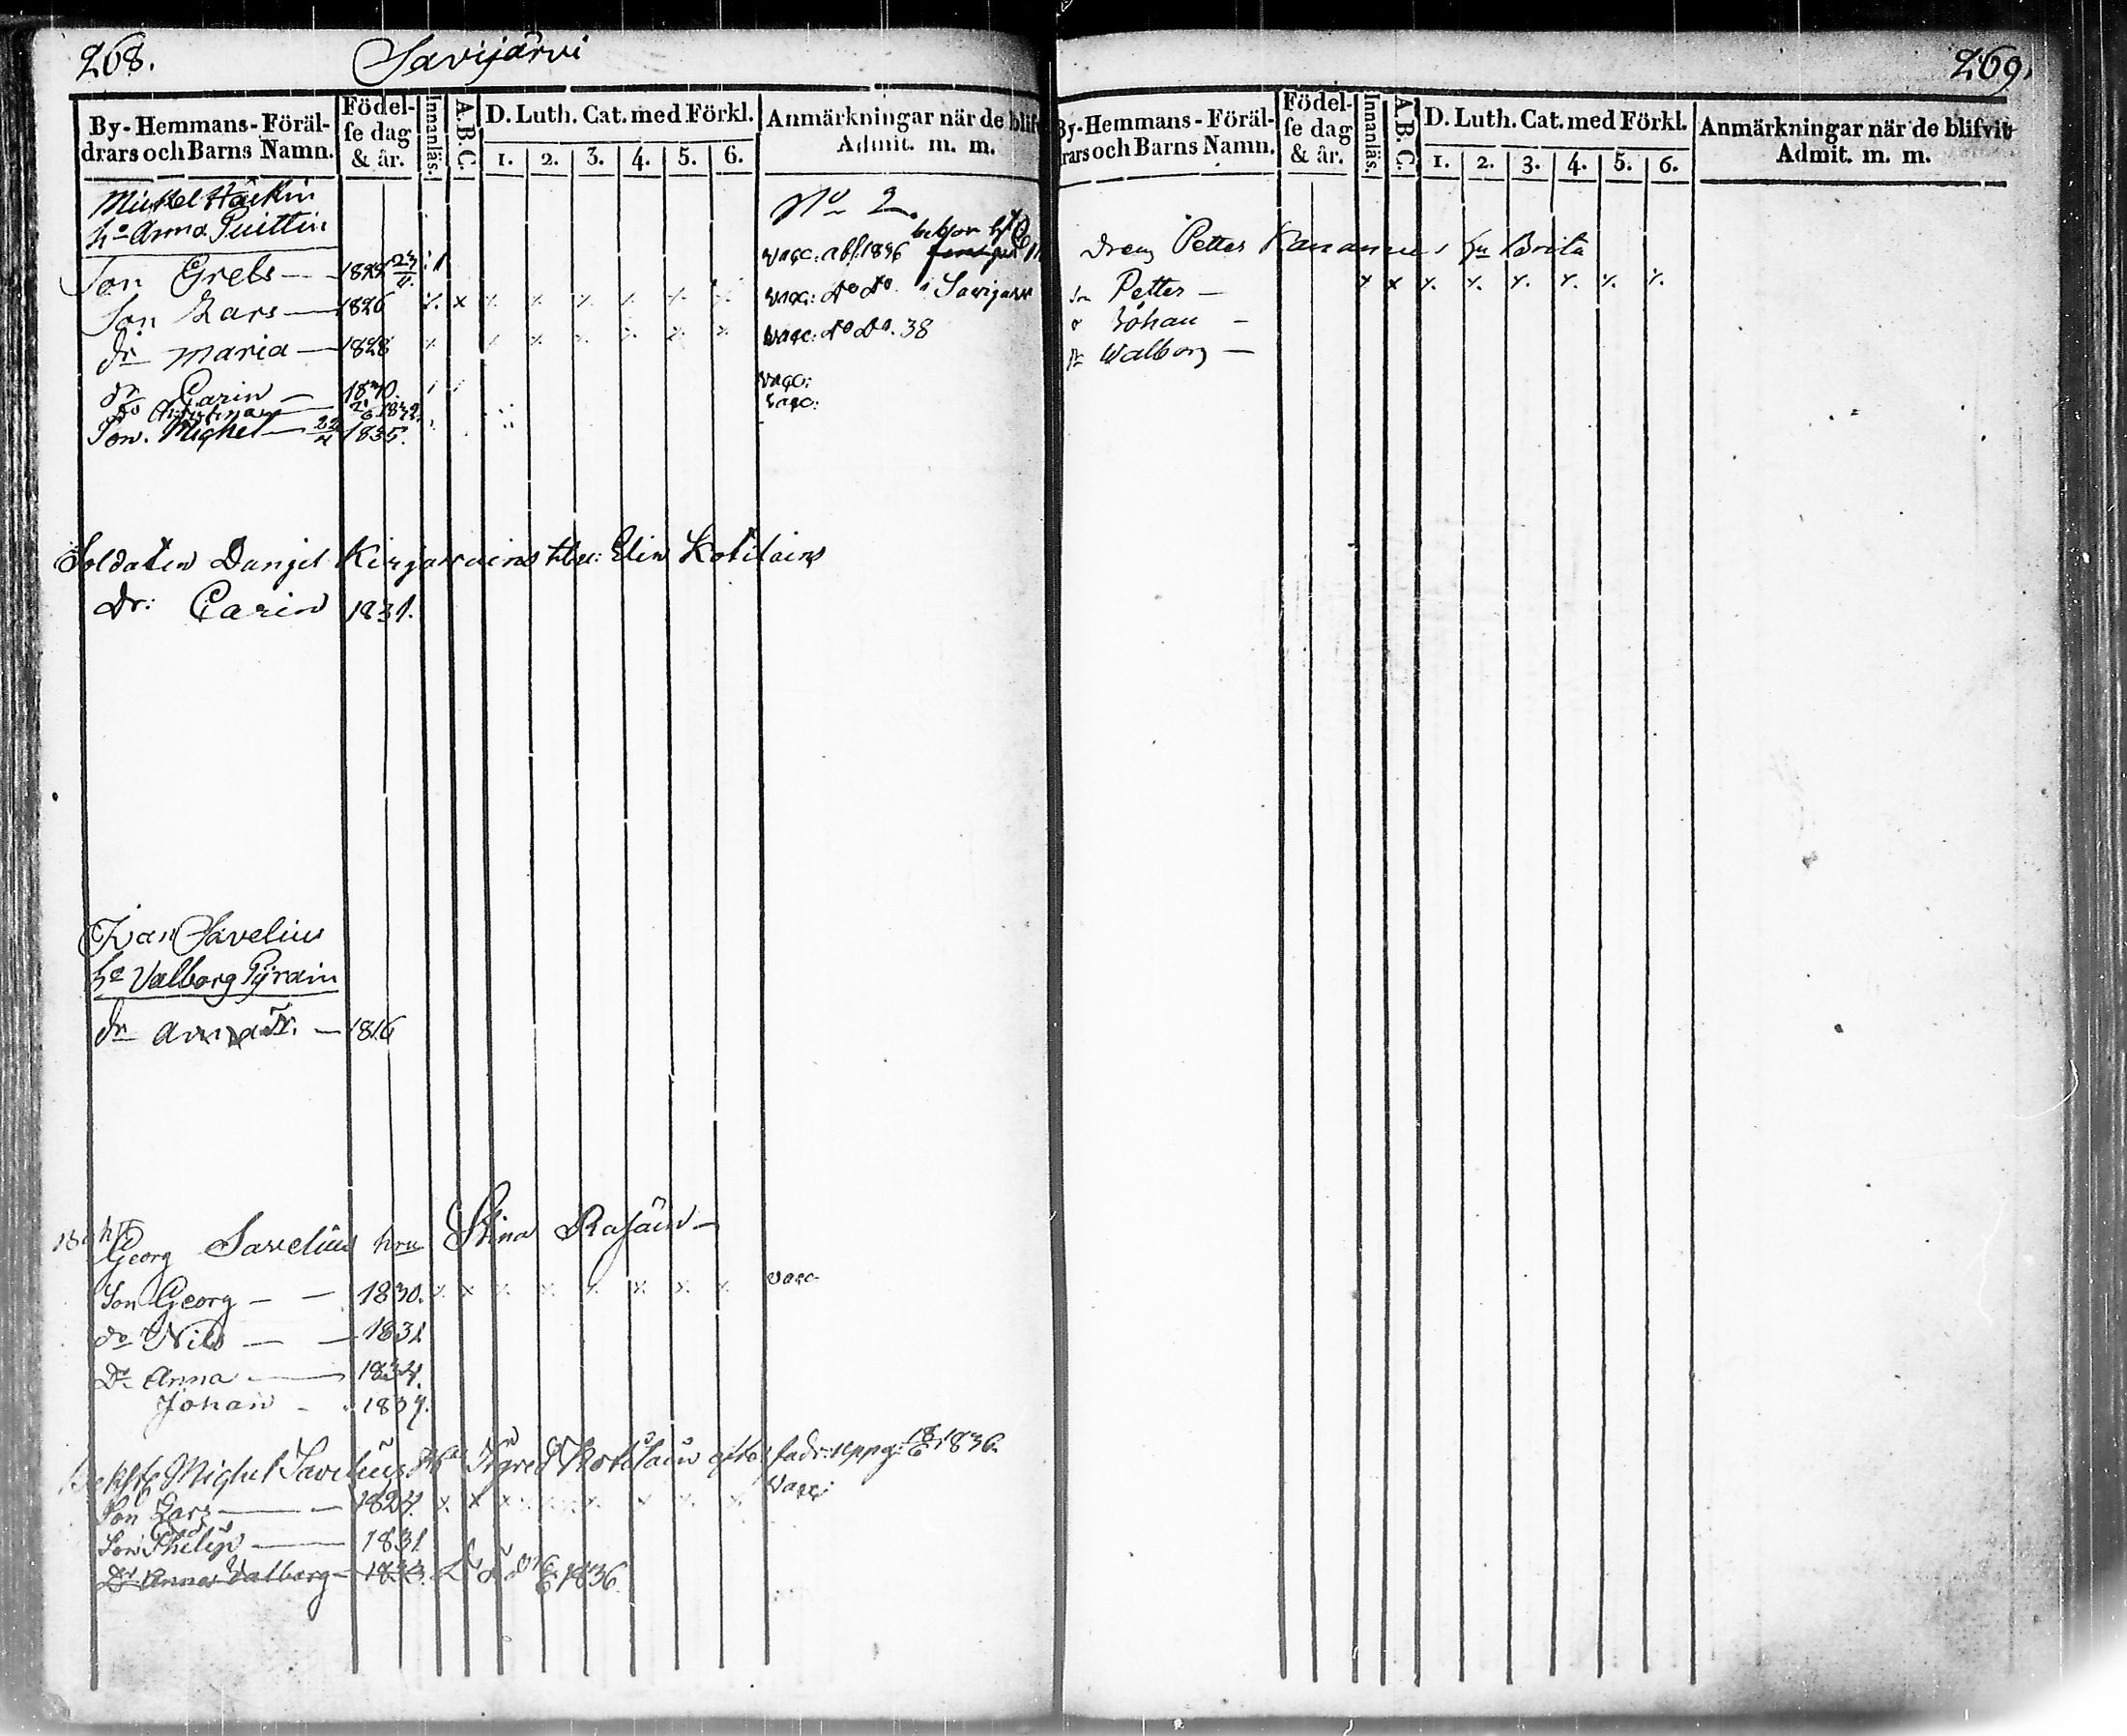 268. Savijärvi
By-Hemmans-Föräl-
drars och Barns Namn.
Födel-
se dag
& år.
Innanläs.
A.B.C.
D. Luth. Cat. med Förkl.
1. 2. 3. 4. 5. 6.
Anmärkningar när de blifv
Admit. m. m.
Mickel Häikin
hu Anna Puittin
No 2.
Son Grels — 23/4. vacc: abs. 1836
Son Lars — 1826 x vacc: do do. Savijärv
dr Maria — 1828 vacc: do do. 38
dr Carin — 1830. vacc:
do Christina 1832. vacc:
Son. Michel — 22/4 1835.
Soldaten Daniel hu: Elin Kotilain
Dr: Carin 1831.
Ivan Savelius
hu Valborg Pyräin
dr Anna — 1816
Georg Savelius hu Stina Rasäin —
Son Georg — — 1830. x x x x x x x x vacc
do Nils — — 1831
Dr Anna — 1834.
Johan
Michel Savelius Ingred Kotilain 18/6 1836.
Son Lars — 1824. x x x x x x x x vacc:
Son Philip — 1831
Dr Anna Valborg — 1833. 1836.
269.
By-Hemmans-Föräl-
rars och Barns Namn.
Födel-
se dag
& år.
Innanläs.
A.B.C.
D. Luth. Cat. med Förkl.
1. 2. 3. 4. 5. 6.
Anmärkningar när de blifvit
Admit. m. m.
Dreng Petter hu Brita
Son Petter — x x x x x x x x
Johan —
dr Walborg —